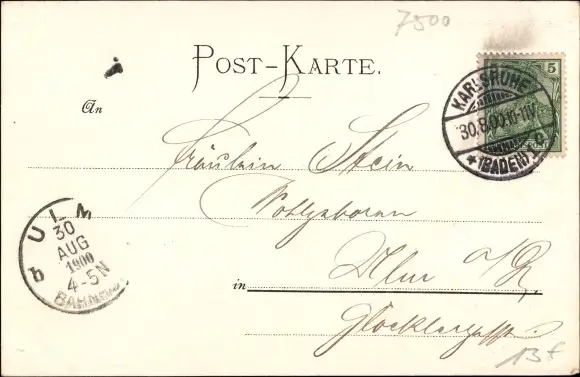 7500
POST-KARTE.
5
KARLSRUHE
30.8.00.10-11V.
*(BADEN)
An
Fräulein Stein
ULM
30
AUG
1900
4-5N
b
BAHNHOF
in Ulm a/D.
13f